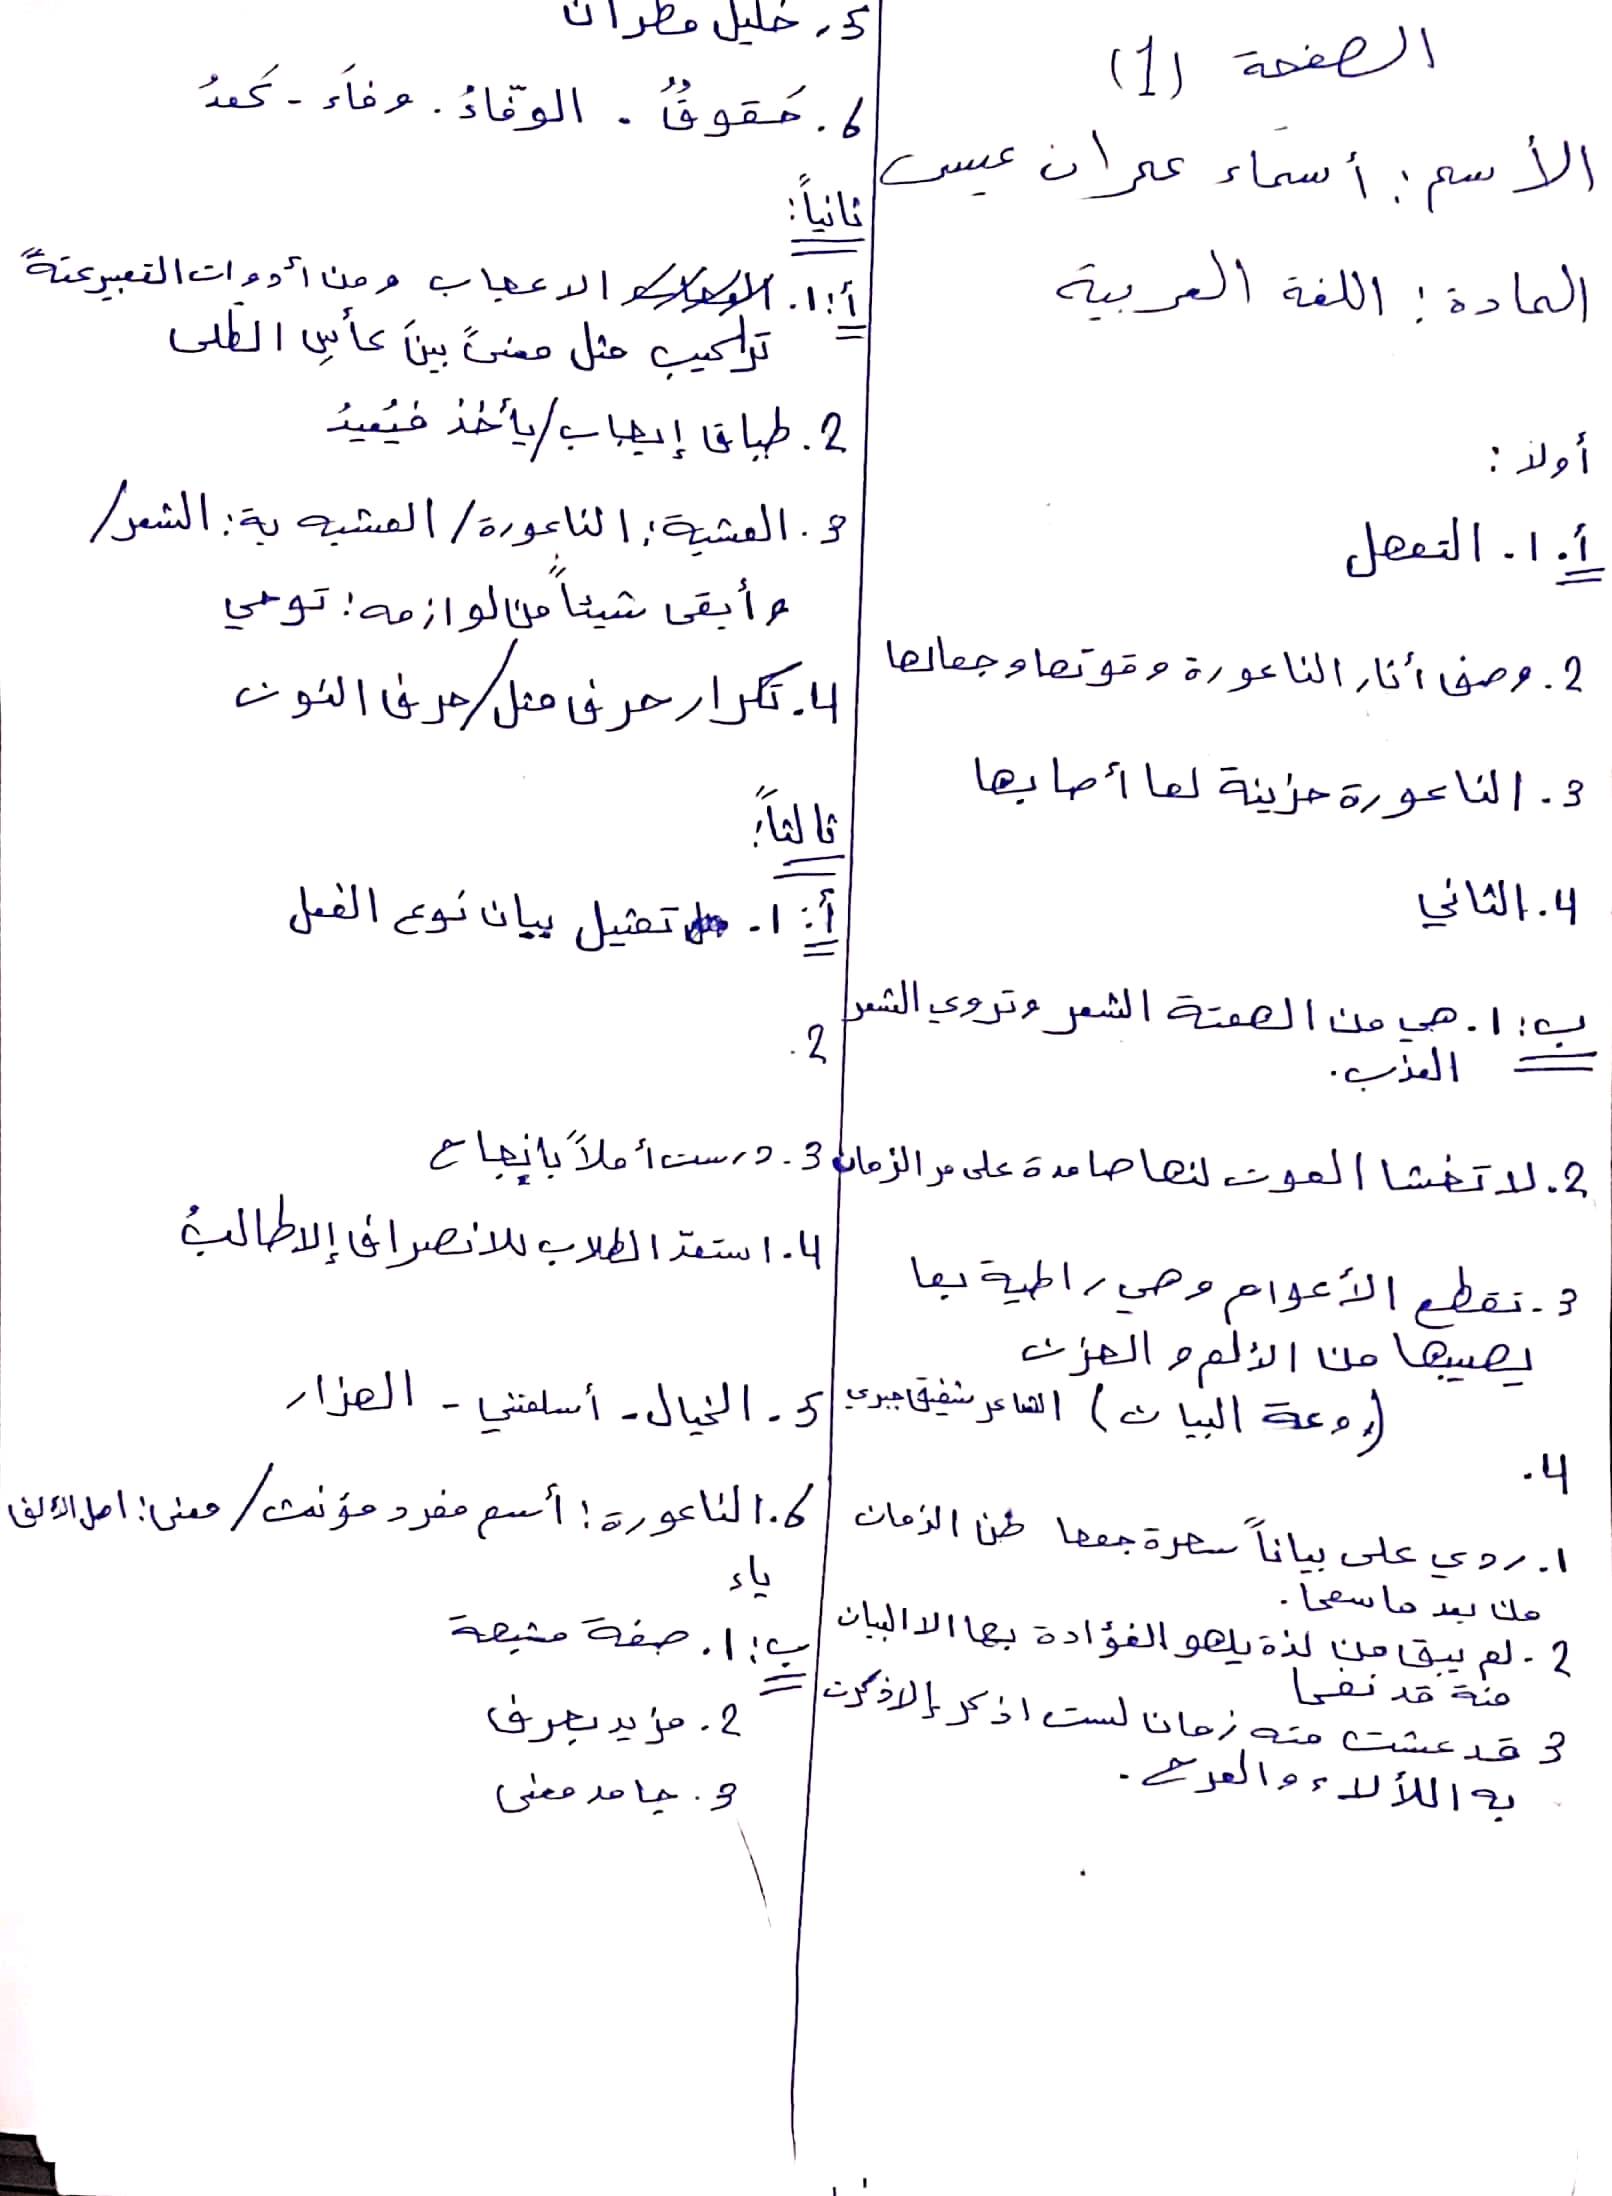 الصفحة (1)
الأسم: أسماء عمران عيسى
المادة: اللغة العربية
أولاً:
أ. 1. التمهل
2. وصف أثار الناعورة وقوتها وجمالها
3. الناعورة حزينة لما أصابها
4. الثاني
ب: 1. هي من الشعر وتروي الشعر
العذب.
2. لا تخشا الموت لنها صامدة على مر الزمان
3. تقطع الأعوام وهي راطية بما
يصيبها من الألم والحزن
(روعة البيان) الشاعر شفيق جبري
4.
1. ردي على بياناً سحرة جمعا ظن الزمان
من بعد ما سمحا.
2. لم يبق من لذة يلهو الفؤادة بها الا البيان
منة قد نفحا
3 قد عشت منه زمان لست اذكر إلا ذكرت
به اللألاء والمرح.
5. خليل مطران
6. حَقوقُ. الوفّاءُ. وفاَء - كَعدُ
ثانياً:
أ: 1. الاعجاب ومن أدوات التعبير عنةً
تراكيب مثل معنىً بينَ كأسِ الطلى
2. طباق إيجاب/يأخُذ فيُعيدُ
3. المشبة: الناعورة/ المشبه بة: الشعر/
وأبقى شيئاً من لوازمه: توحي
4. تكرار حرف مثل/حرف النون
ثالثاً:
أ: 1. تمثيل بيان نوع الفعل
2.
3. درست أملاً بانٍجاح
4. استعدّ الطلاب للانصراف إلا طالبُ
5. الخيال - أسلمتني - الهزار
6. الناعورة: أسم مفرد مؤنث/ معنى: اصل الألف
ياء
ب: 1. صفة مشبهة
2. مزيد بحرف
3. جامد معنى